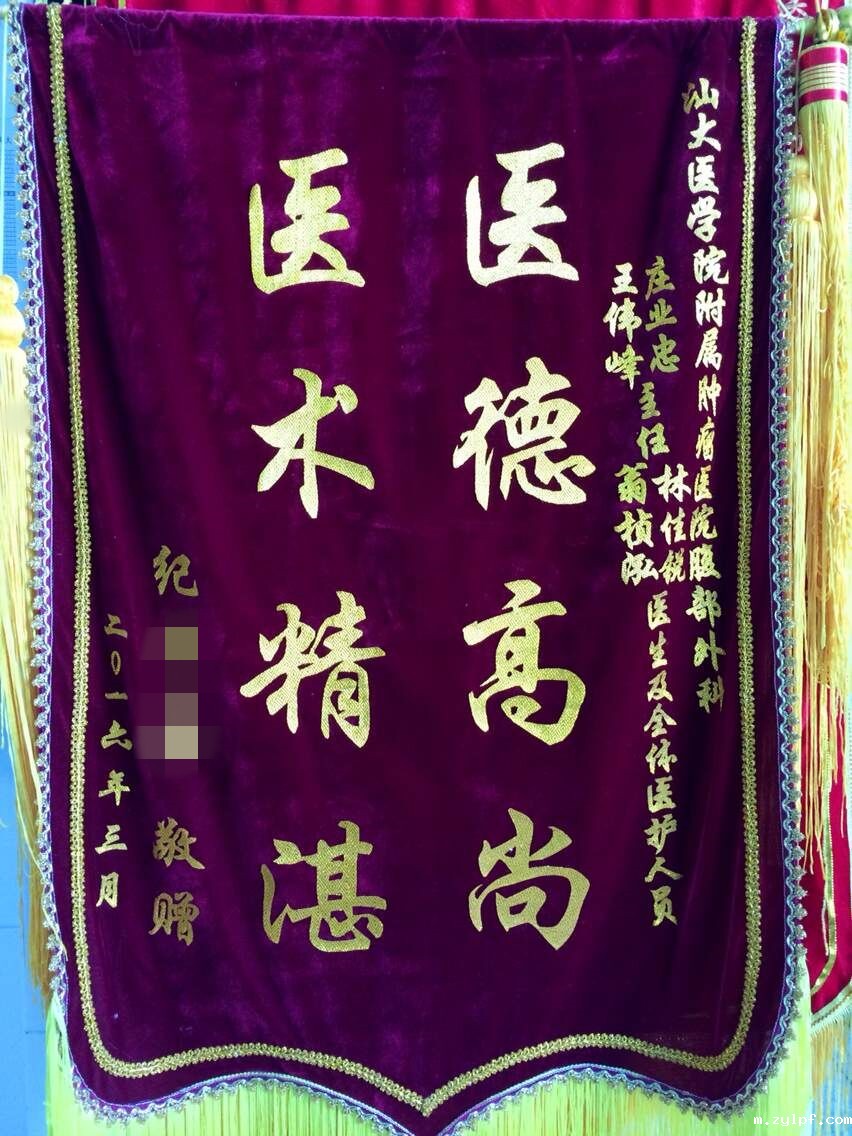 汕大医学院附属肿瘤医院腹部外科
庄业忠
王伟峰
主任
林佳锐
翁桢泓
医生及全体医护人员
医德高尚
医术精湛
纪
敬赠
二0一六年三月
m.zylpf.com